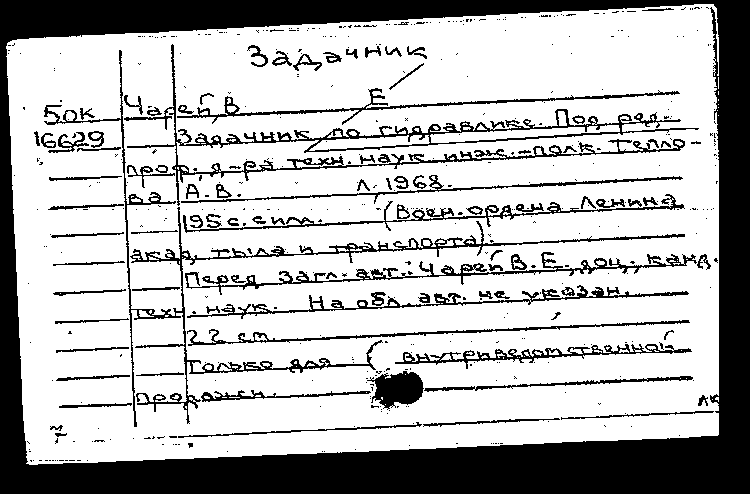 Задачник
50к Чарей, В Е
16629 Задачник по гидравлике. Под ред.
проф., д-ра техн. наук инж.-полк. Тепло-
ва А.В. Л. 1968.
195 с. с илл. (Воен. ордена Ленина
акад. тыла и транспорта).
Перед загл. авт.: Чарей В.Е., доц., канд.
техн. наук. На обл. авт. не указан.
22 см.
Только для (внутриведомственной
продажи.
АК